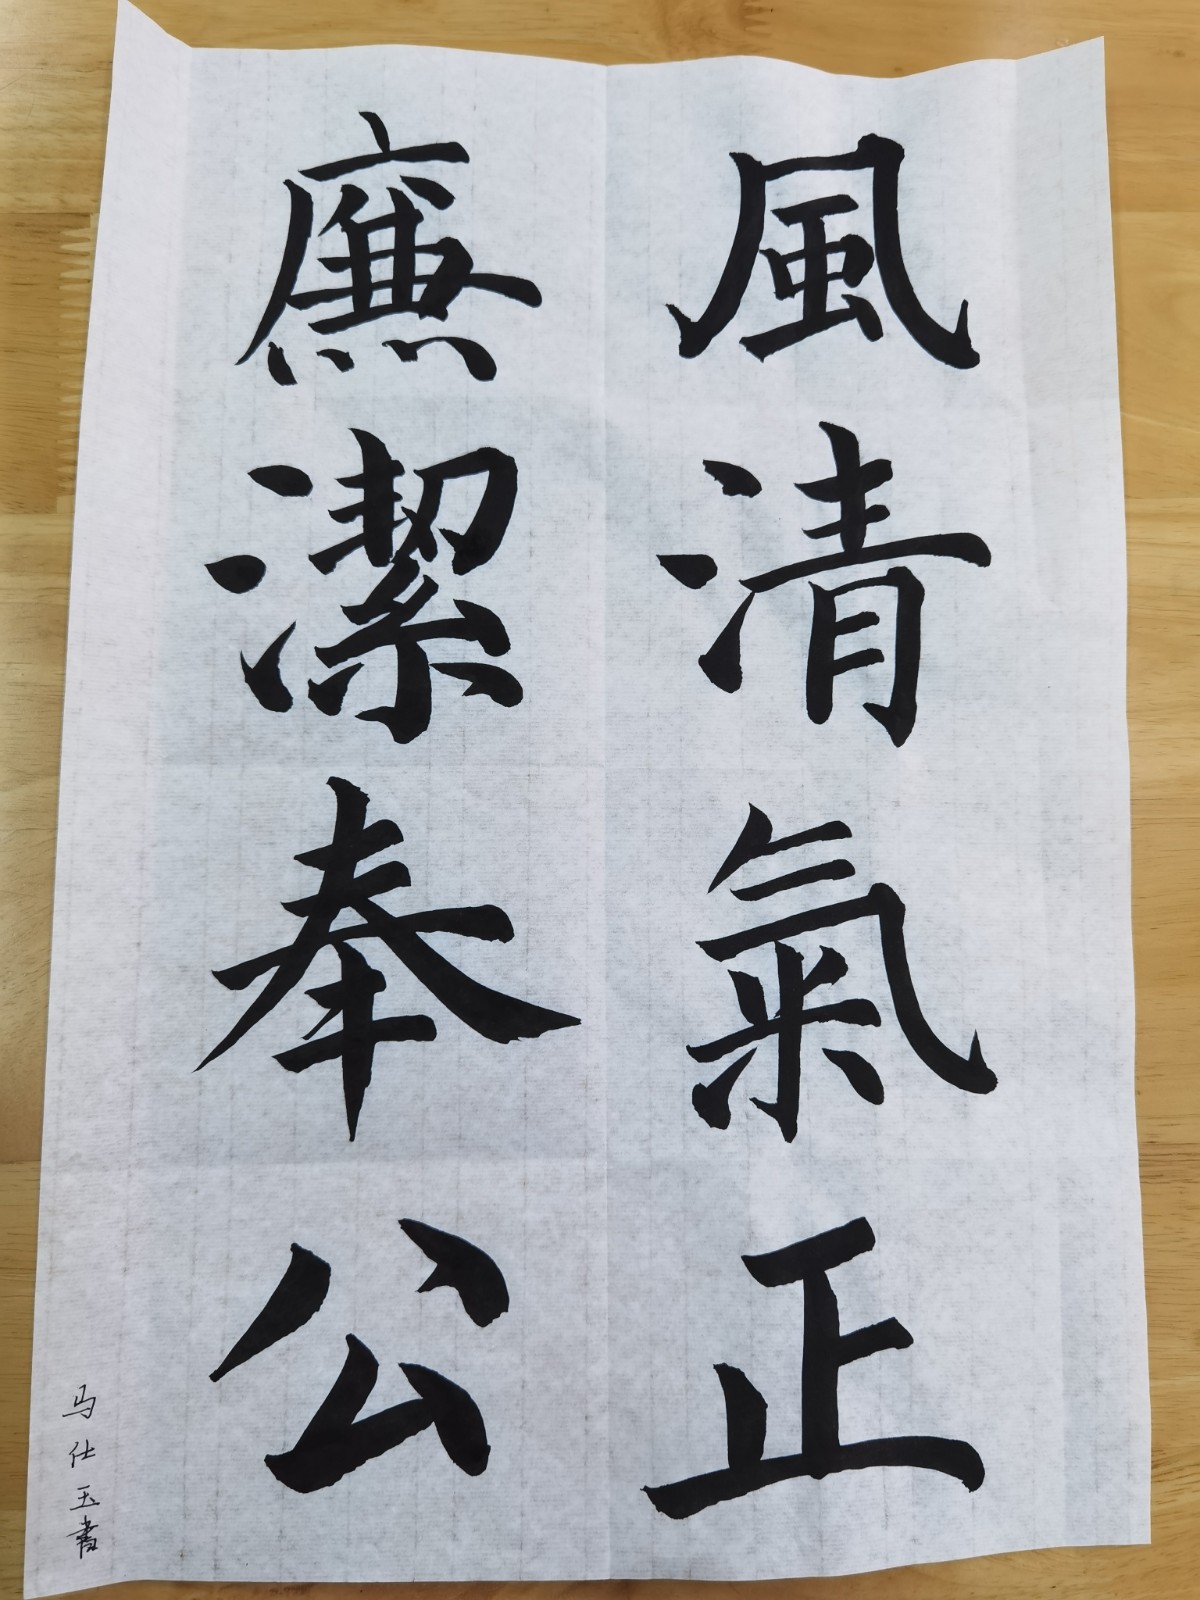 風清氣正
廉潔奉公
马仕玉書